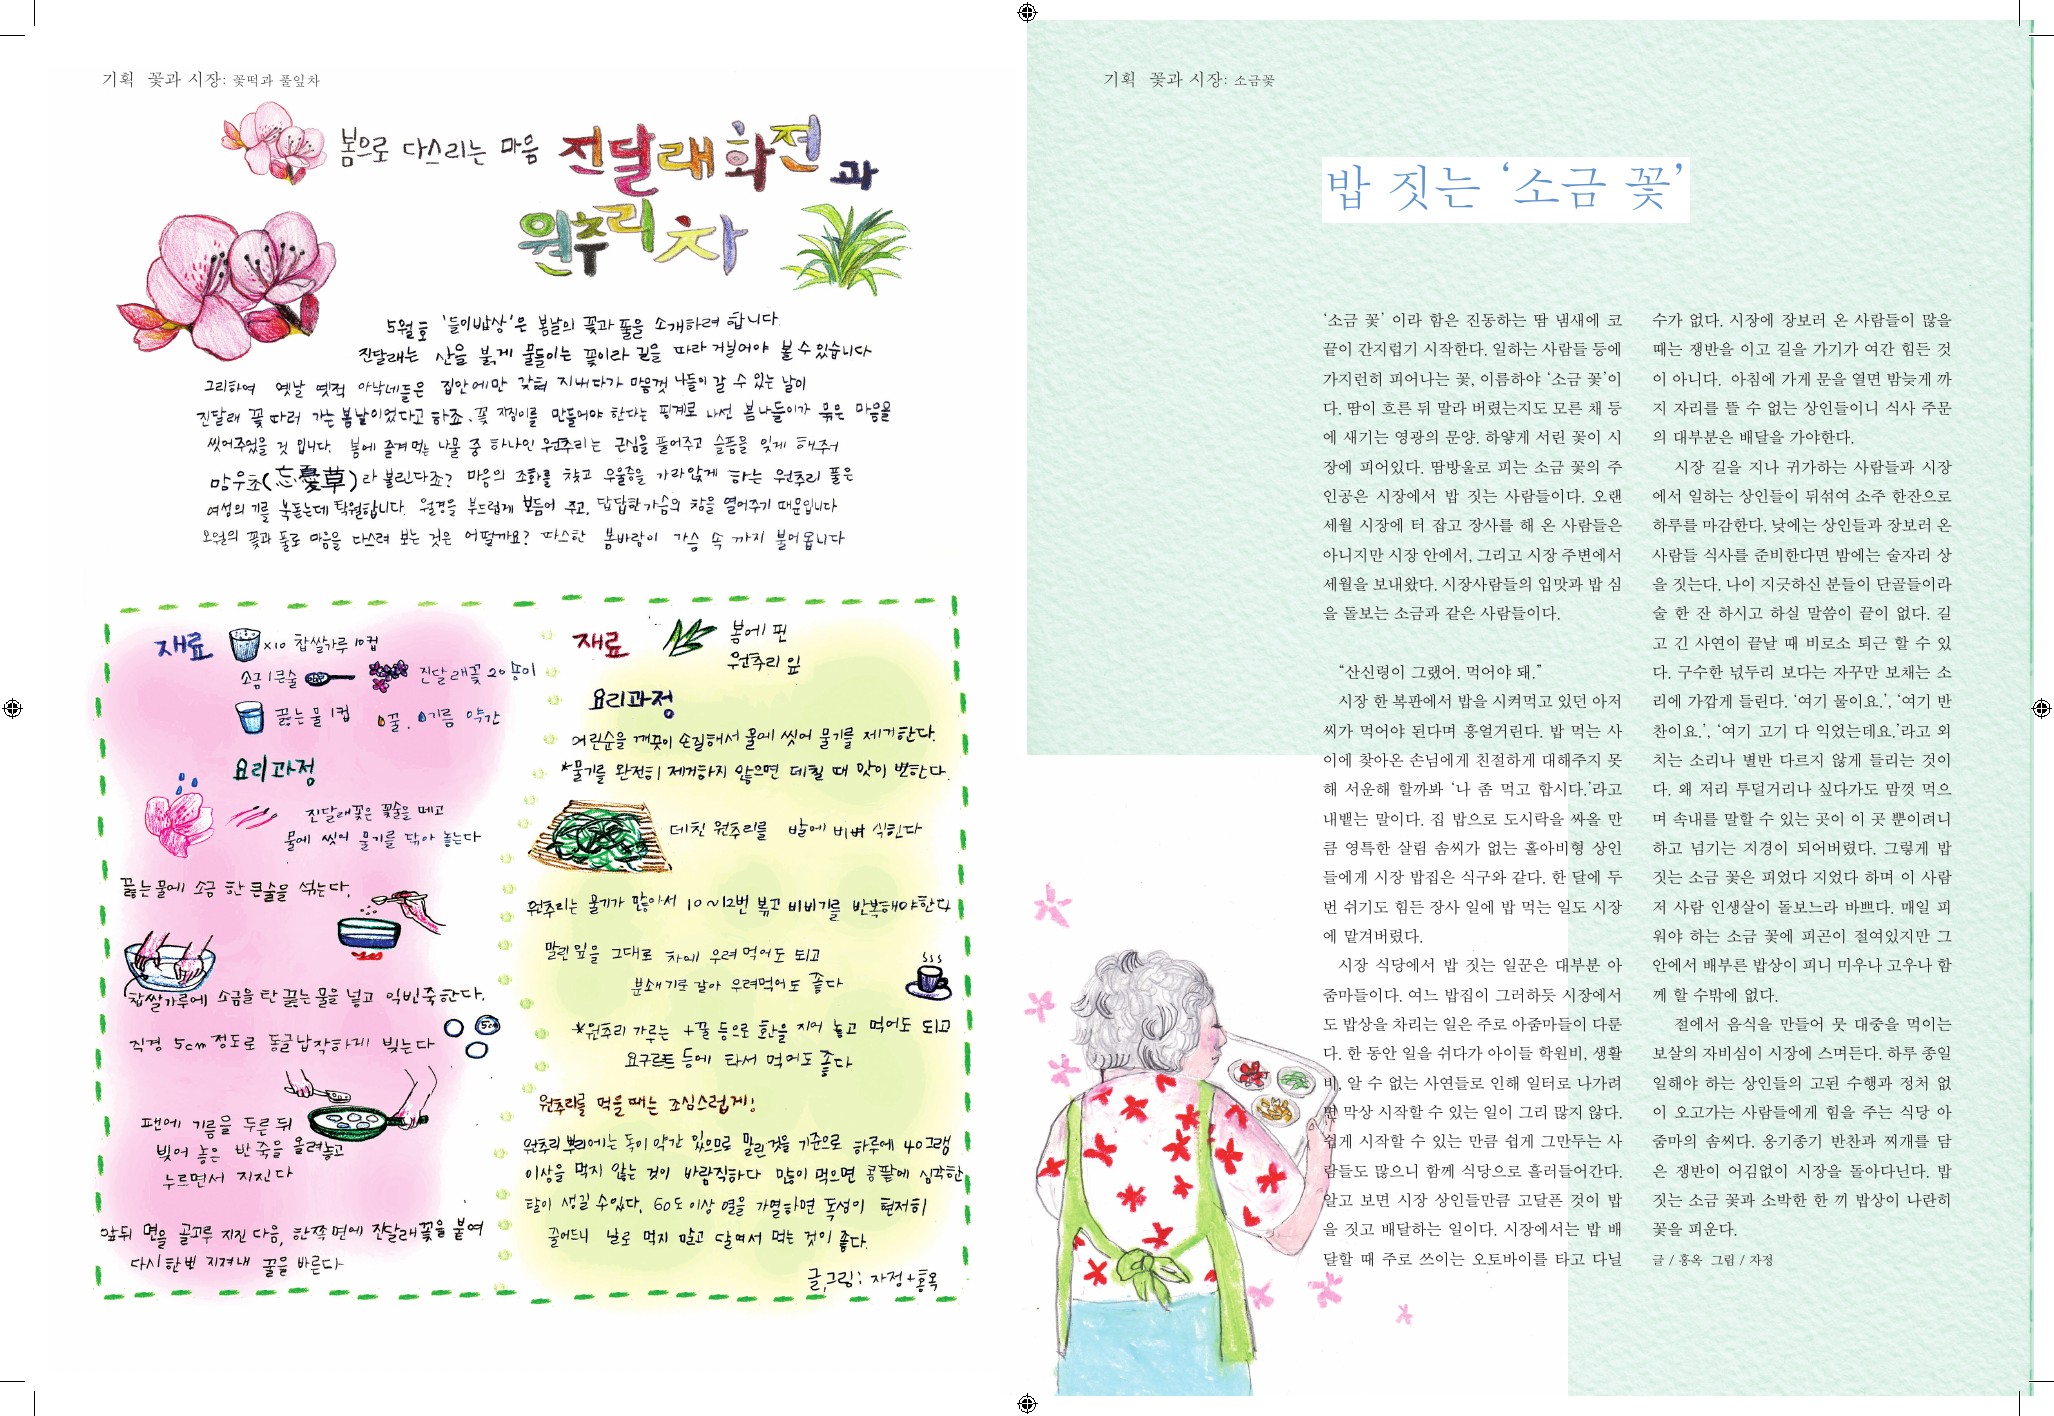 기획 꽃과 시장: 꽃떡과 풀잎차
봄으로 다스리는 마음 진달래화전과
원추리차
5월호 '들이밥상'은 봄날의 꽃과 풀을 소개하려 합니다.
진달래는 산을 붉게 물들이는 꽃이라 길을 따라 거닐어야 볼 수 있습니다
그리하여 옛날 옛적 아낙네들은 집안에만 갇혀 지내다가 마음껏 나들이 갈 수 있는 날이
진달래 꽃 따러 가는 봄날이었다고 하죠. 꽃 지짐이를 만들어야 한다는 핑계로 나선 봄나들이가 묶은 마음을
씻어주었을 것 입니다. 봄에 즐겨먹는 나물 중 하나인 원추리는 근심을 풀어주고 슬픔을 잊게 해주어
망우초(忘憂草)라 불린다죠? 마음의 조화를 찾고 우울증을 가라앉게 하는 원추리 풀은
여성의 기를 북돋는데 탁월합니다. 월경을 부드럽게 보듬어 주고, 답답한 가슴의 창을 열어주기 때문입니다
오월의 꽃과 풀로 마음을 다스려 보는 것은 어떨까요? 따스한 봄바람이 가슴 속 까지 불어옵니다
재료 x10 찹쌀가루 10컵
소금 1큰술 진달래꽃 20송이
끓는 물 1컵 꿀, 기름 약간
요리과정
진달래꽃은 꽃술을 떼고
물에 씻어 물기를 닦아 놓는다
끓는 물에 소금 한 큰술을 섞는다.
찹쌀가루에 소금을 탄 끓는 물을 넣고 익반죽한다.
직경 5cm 정도로 동글납작하게 빚는다
5cm
팬에 기름을 두른 뒤
빚어 놓은 반죽을 올려놓고
누르면서 지진다
앞뒤 면을 골고루 지진 다음, 한쪽 면에 진달래꽃을 붙여
다시 한번 지져내 꿀을 바른다
재료 봄에 핀
원추리 잎
요리과정
어린순을 깨끗이 손질해서 물에 씻어 물기를 제거한다.
*물기를 완전히 제거하지 않으면 데칠 때 맛이 변한다.
데친 원추리를 발에 비벼 식힌다
원추리는 물기가 많아서 10~12번 볶고 비비기를 반복해야한다
말린 잎을 그대로 차에 우려 먹어도 되고
분쇄기로 갈아 우려먹어도 좋다
*원추리 가루는 +꿀 등으로 환을 지어 놓고 먹어도 되고
요구르트 등에 타서 먹어도 좋다
원추리를 먹을 때는 조심스럽게!
원추리 뿌리에는 독이 약간 있으므로 말린것을 기준으로 하루에 40그램
이상을 먹지 않는 것이 바람직하다 많이 먹으면 콩팥에 심각한
탈이 생길 수있다. 60도 이상 열을 가열하면 독성이 현저히
줄어드니 날로 먹지 말고 달여서 먹는 것이 좋다.
글,그림: 자정+홍옥
기획 꽃과 시장: 소금꽃
밥 짓는 ‘소금 꽃’
‘소금 꽃’ 이라 함은 진동하는 땀 냄새에 코
끝이 간지럽기 시작한다. 일하는 사람들 등에
가지런히 피어나는 꽃, 이름하야 ‘소금 꽃’이
다. 땀이 흐른 뒤 말라 버렸는지도 모른 채 등
에 새기는 영광의 문양. 하얗게 서린 꽃이 시
장에 피어있다. 땀방울로 피는 소금 꽃의 주
인공은 시장에서 밥 짓는 사람들이다. 오랜
세월 시장에 터 잡고 장사를 해 온 사람들은
아니지만 시장 안에서, 그리고 시장 주변에서
세월을 보내왔다. 시장사람들의 입맛과 밥 심
을 돌보는 소금과 같은 사람들이다.
“산신령이 그랬어. 먹어야 돼.”
시장 한 복판에서 밥을 시켜먹고 있던 아저
씨가 먹어야 된다며 흥얼거린다. 밥 먹는 사
이에 찾아온 손님에게 친절하게 대해주지 못
해 서운해 할까봐 ‘나 좀 먹고 합시다.’라고
내뱉는 말이다. 집 밥으로 도시락을 싸올 만
큼 영특한 살림 솜씨가 없는 홀아비형 상인
들에게 시장 밥집은 식구와 같다. 한 달에 두
번 쉬기도 힘든 장사 일에 밥 먹는 일도 시장
에 맡겨버렸다.
시장 식당에서 밥 짓는 일꾼은 대부분 아
줌마들이다. 여느 밥집이 그러하듯 시장에서
도 밥상을 차리는 일은 주로 아줌마들이 다룬
다. 한 동안 일을 쉬다가 아이들 학원비, 생활
비, 알 수 없는 사연들로 인해 일터로 나가려
면 막상 시작할 수 있는 일이 그리 많지 않다.
쉽게 시작할 수 있는 만큼 쉽게 그만두는 사
람들도 많으니 함께 식당으로 흘러들어간다.
알고 보면 시장 상인들만큼 고달픈 것이 밥
을 짓고 배달하는 일이다. 시장에서는 밥 배
달할 때 주로 쓰이는 오토바이를 타고 다닐
수가 없다. 시장에 장보러 온 사람들이 많을
때는 쟁반을 이고 길을 가기가 여간 힘든 것
이 아니다. 아침에 가게 문을 열면 밤늦게 까
지 자리를 뜰 수 없는 상인들이니 식사 주문
의 대부분은 배달을 가야한다.
시장 길을 지나 귀가하는 사람들과 시장
에서 일하는 상인들이 뒤섞여 소주 한잔으로
하루를 마감한다. 낮에는 상인들과 장보러 온
사람들 식사를 준비한다면 밤에는 술자리 상
을 짓는다. 나이 지긋하신 분들이 단골들이라
술 한 잔 하시고 하실 말씀이 끝이 없다. 길
고 긴 사연이 끝날 때 비로소 퇴근 할 수 있
다. 구수한 넋두리 보다는 자꾸만 보채는 소
리에 가깝게 들린다. ‘여기 물이요.’, ‘여기 반
찬이요.’, ‘여기 고기 다 익었는데요.’라고 외
치는 소리나 별반 다르지 않게 들리는 것이
다. 왜 저리 투덜거리나 싶다가도 맘껏 먹으
며 속내를 말할 수 있는 곳이 이 곳 뿐이려니
하고 넘기는 지경이 되어버렸다. 그렇게 밥
짓는 소금 꽃은 피었다 지었다 하며 이 사람
저 사람 인생살이 돌보느라 바쁘다. 매일 피
워야 하는 소금 꽃에 피곤이 절여있지만 그
안에서 배부른 밥상이 피니 미우나 고우나 함
께 할 수밖에 없다.
절에서 음식을 만들어 뭇 대중을 먹이는
보살의 자비심이 시장에 스며든다. 하루 종일
일해야 하는 상인들의 고된 수행과 정처 없
이 오고가는 사람들에게 힘을 주는 식당 아
줌마의 솜씨다. 옹기종기 반찬과 찌개를 담
은 쟁반이 어김없이 시장을 돌아다닌다. 밥
짓는 소금 꽃과 소박한 한 끼 밥상이 나란히
꽃을 피운다.
글 / 홍옥 그림 / 자정